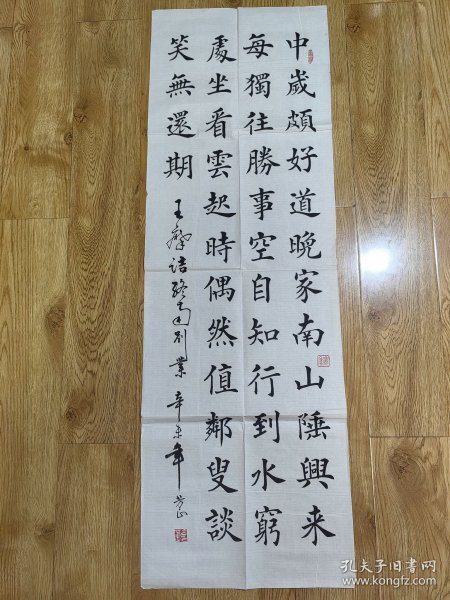 中歲頗好道晚家南山陲興来
每獨往勝事空自知行到水窮
處坐看雲起時偶然值鄰叟談
笑無還期
王摩詰終南別業 辛未年
孔夫子旧书网
www.kongfz.com